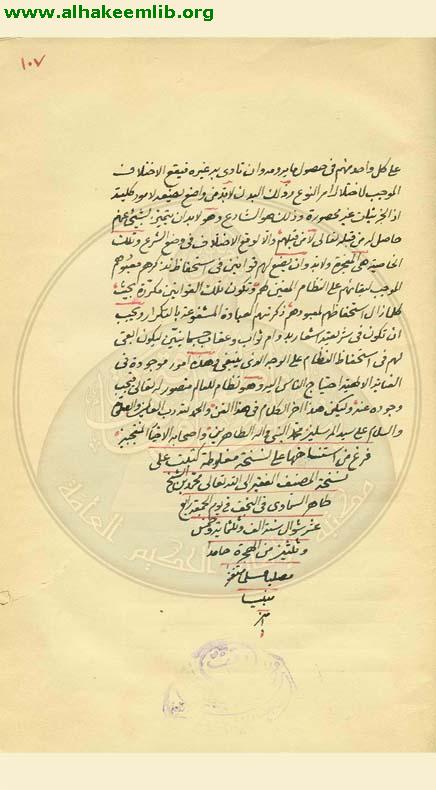 www.alhakeemlib.org
١٠٧
على كل واحد منهم في حصول ما يرومه وان تاوى به غيره فيقع الاختلاف
الموجب لاختلال امر النوع
اذ الجزئيات غير محصورة وذلك هو الشارع وهو لا بد ان يتميز بشئ عنهم
حاصل له من قبله تعالى لا من قبلهم والا لوقع الاختلاف في وضع الشرع وتلك
الخاصية هي المعجزة ولا بد وان يضع لهم قوانين في استحفاظ تذكرهم معبودهم
الموجب لبقائهم على النظام المعين لهم وتكون تلك القوانين مكررة بحيث
كلما زال استحفاظهم لمعبودهم ذكرتهم كعبادة المشفوعة بالتكرار ويجب
ان تكون في سنن وثواب وعقاب جسمانيتين ليكون ادعى
لهم في استحفاظ النظام على الوجه الذي ينبغي وهذه امور موجودة في
العناية الالهية احتاج الناس اليه وهو نظام للعالم متصور له تعالى فيجب
وجوده عنه وليكن هذا اخر الكلام في هذا الفن والحمد لله رب العالمين والصلوة
والسلام على سيد المرسلين محمد النبي واله الطاهرين واصحابه
فرغ من استنساخها على نسخة مغلوطة كتبت على
نسخة المصنف الفقير الى الله تعالى محمد بن الشيخ
طاهر السماوي في النجف في يوم الجمعة
عشر شوال سنة الف وثلثماية وخمس
وثلثين من الهجرة حامدا
مصليا مسلما